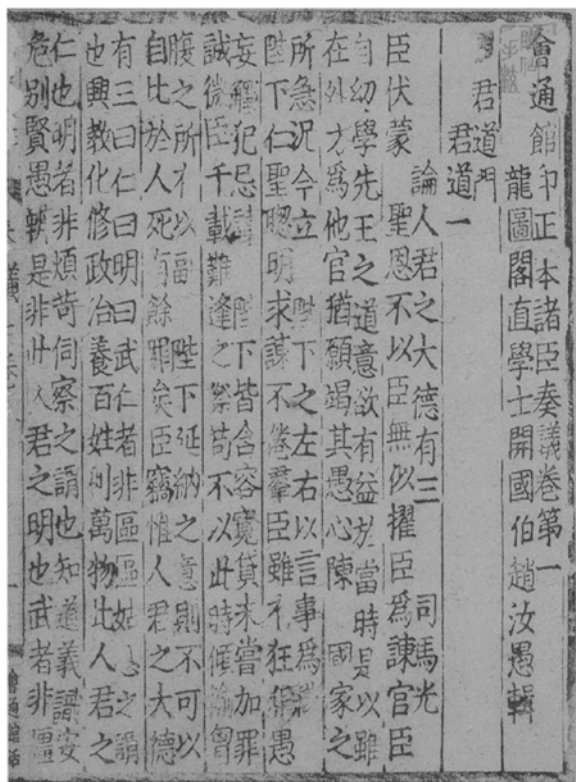 會通館印正本諸臣奏議卷第一
龍圖閣直學士開國伯趙汝愚輯
君道門
君道一
論人君之大德有三 司馬光
臣伏蒙 聖恩不以臣無似擢臣為諫官臣
自幼學先王之道意欲有益於當時是以雖
在外才為他官猶願竭其愚心陳 國家之
所急況今立 陛下之左右以言事為職
陛下仁聖聰明求諫不倦羣臣雖有狂狷愚
妄觸犯忌諱 陛下皆含容寬貸未嘗加罪
誠微臣千載難逢之際苟不以此時傾瀉胷
腹之所有以副 陛下延納之意則不可以
自比於人死有餘罪矣臣竊惟人君之大德
有三曰仁曰明曰武仁者非區區姑息之謂
也興教化修政治養百姓利萬物此人君之
仁也明者非煩苛伺察之謂也知道義識安
危別賢愚辨是非此人君之明也武者非彊